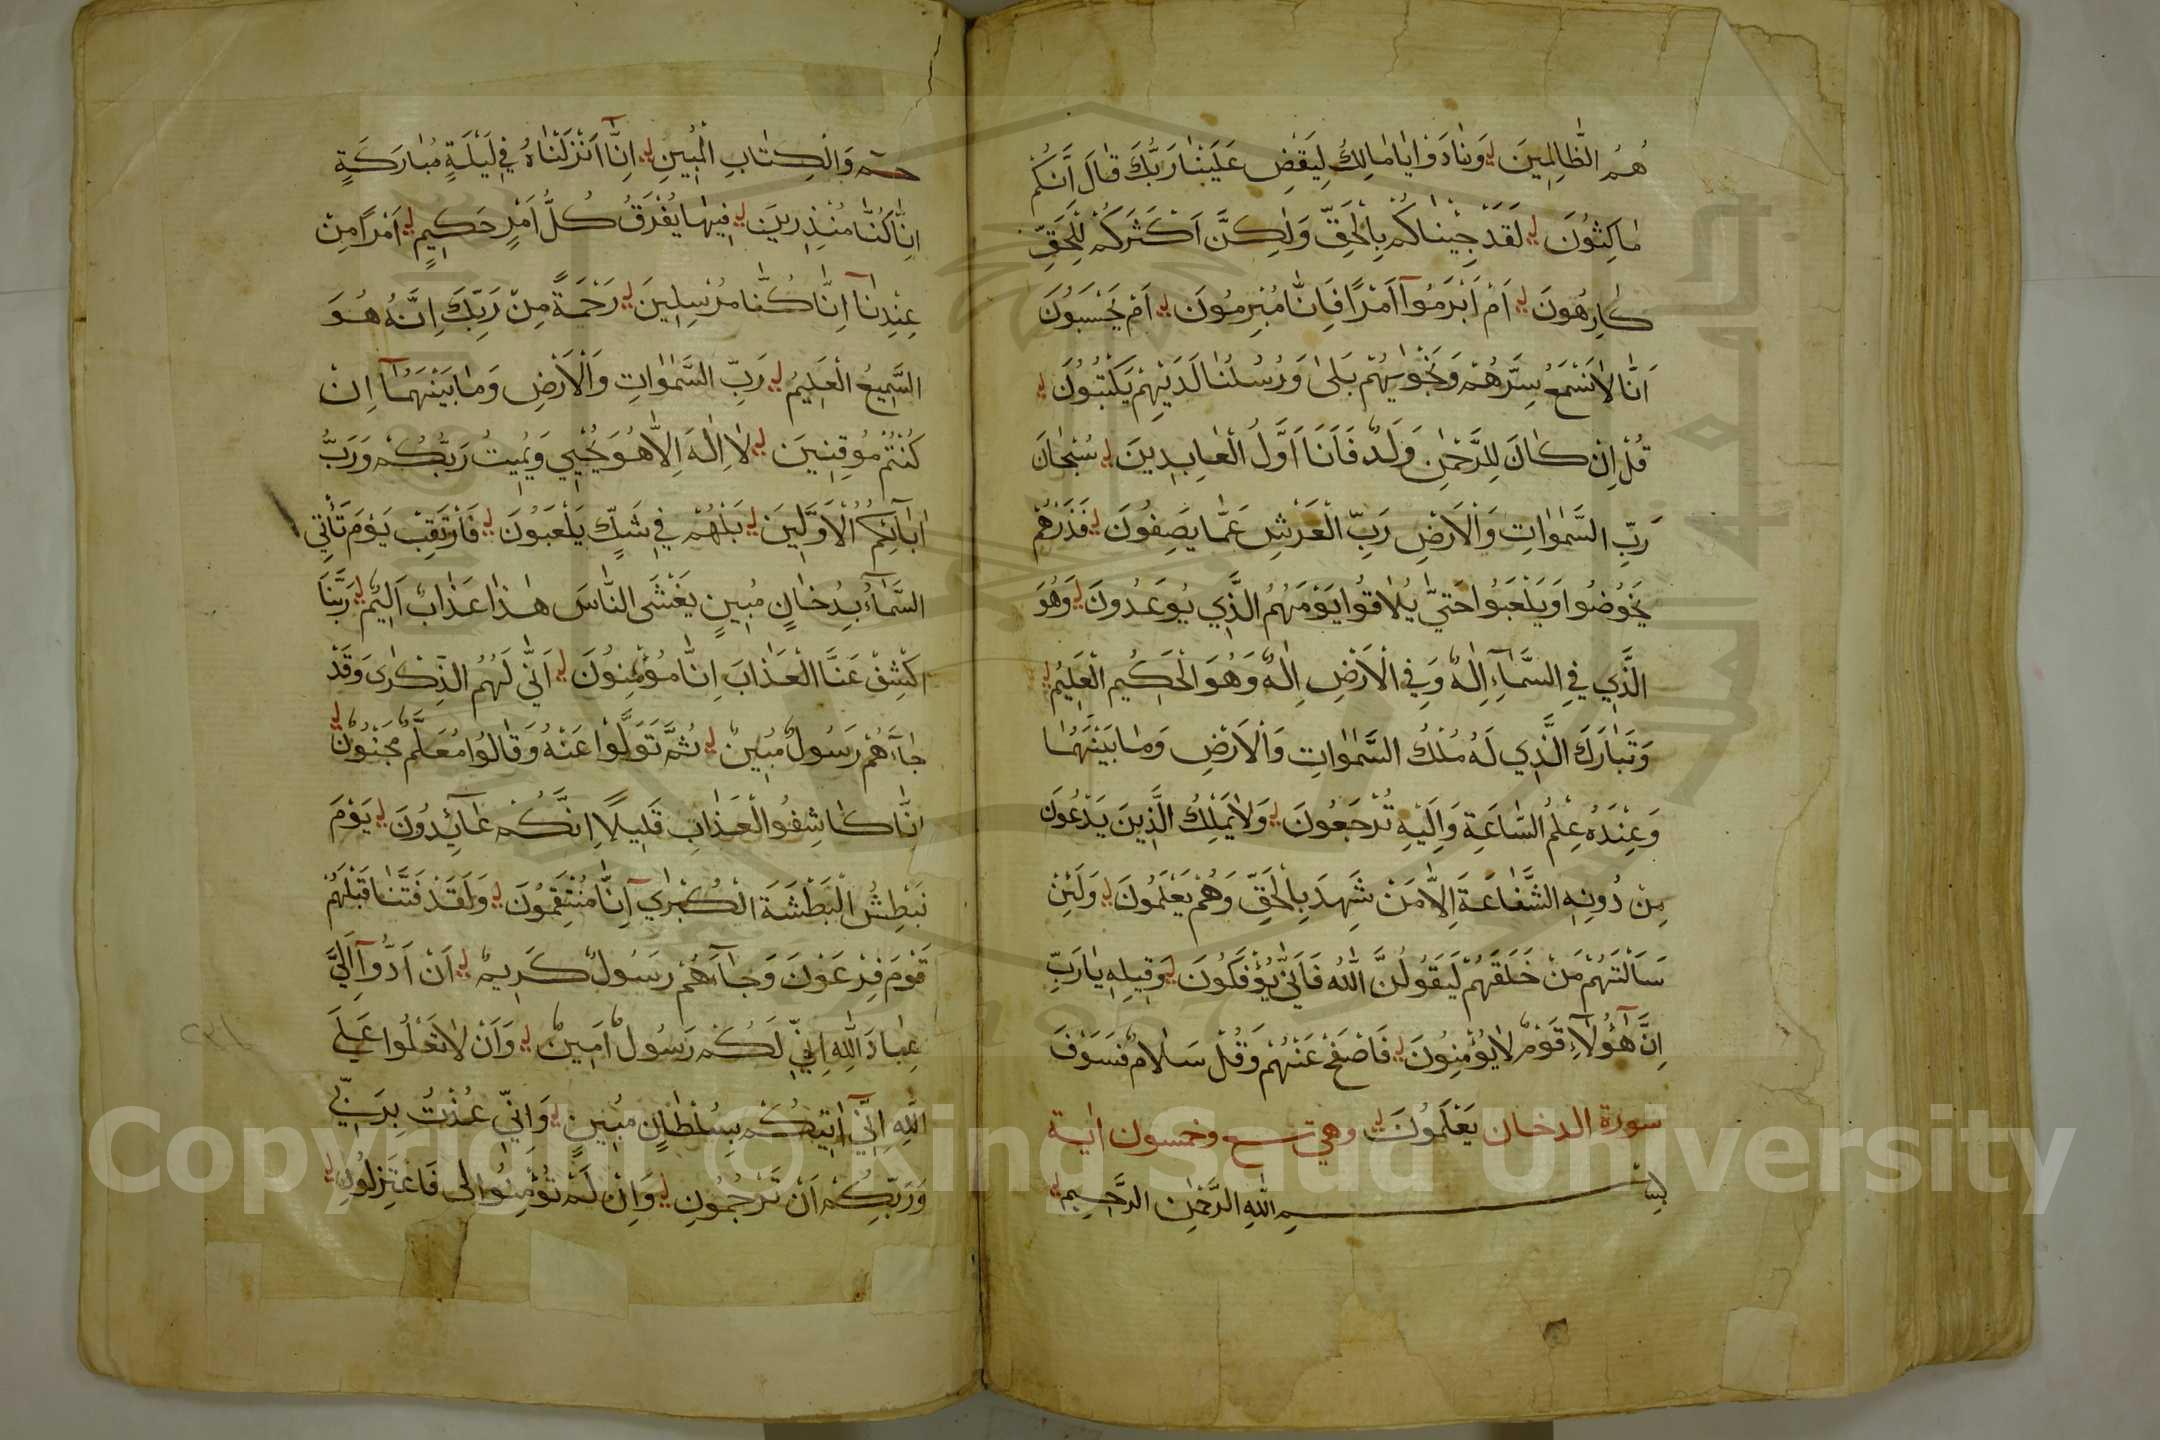 هُمُ الظَّالِمِينَ وَنَادَوْا يَا مَالِكُ لِيَقْضِ عَلَيْنَا رَبُّكَ قَالَ اَنَّكُمْ
مَاكِثُونَ لَقَدْ جِئْنَاكُمْ بِالْحَقِّ وَلٰكِنَّ اَكْثَرَكُمْ لِلْحَقِّ
كَارِهُونَ اَمْ اَبْرَمُوآ اَمْرًا فَاِنَّا مُبْرِمُونَ اَمْ يَحْسَبُونَ
اَنَّا لَا نَسْمَعُ سِرَّهُمْ وَنَجْوٰيهُمْ بَلىٰ وَرُسُلُنَا لَدَيْهِمْ يَكْتُبُونَ
قُلْ اِنْ كَانَ لِلرَّحْمٰنِ وَلَدٌ فَاَنَا اَوَّلُ الْعَابِدِينَ سُبْحَانَ
رَبِّ السَّمٰوَاتِ وَالْاَرْضِ رَبِّ الْعَرْشِ عَمَّا يَصِفُونَ فَذَرْهُمْ
يَخُوضُوا وَيَلْعَبُوا حَتىّٰ يُلَاقُوا يَوْمَهُمُ الَّذِي يُوعَدُونَ وَهُوَ
الَّذِي فِي السَّمَآءِ اِلٰهٌ وَفِي الْاَرْضِ اِلٰهٌ وَهُوَ الْحَكِيمُ الْعَلِيمُ
وَتَبَارَكَ الَّذِي لَهُ مُلْكُ السَّمٰوَاتِ وَالْاَرْضِ وَمَا بَيْنَهُمَا
وَعِنْدَهُ عِلْمُ السَّاعَةِ وَاِلَيْهِ تُرْجَعُونَ وَلَا يَمْلِكُ الَّذِينَ يَدْعُونَ
مِنْ دُونِهِ الشَّفَاعَةَ اِلَّا مَنْ شَهِدَ بِالْحَقِّ وَهُمْ يَعْلَمُونَ وَلَئِنْ
سَاَلْتَهُمْ مَنْ خَلَقَهُمْ لَيَقُولُنَّ اللّٰهُ فَاَنّٰى يُؤْفَكُونَ وَقِيلِهِ يَا رَبِّ
اِنَّ هٰٓؤُلَآءِ قَوْمٌ لَا يُؤْمِنُونَ فَاصْفَحْ عَنْهُمْ وَقُلْ سَلَامٌ فَسَوْفَ
سورة الدخان يَعْلَمُونَ وهي تسع وخمسون اية
بِسْمِ اللّٰهِ الرَّحْمٰنِ الرَّحِيمِ
حٓمٓ وَالْكِتَابِ الْمُبِينِ اِنَّآ اَنْزَلْنَاهُ فِي لَيْلَةٍ مُبَارَكَةٍ
اِنَّا كُنَّا مُنْذِرِينَ فِيهَا يُفْرَقُ كُلُّ اَمْرٍ حَكِيمٍ اَمْرًا مِنْ
عِنْدِنَآ اِنَّا كُنَّا مُرْسِلِينَ رَحْمَةً مِنْ رَبِّكَ اِنَّهُ هُوَ
السَّمِيعُ الْعَلِيمُ رَبِّ السَّمٰوَاتِ وَالْاَرْضِ وَمَا بَيْنَهُمَآ اِنْ
كُنْتُمْ مُوقِنِينَ لَا اِلٰهَ اِلَّا هُوَ يُحْيِي وَيُمِيتُ رَبُّكُمْ وَرَبُّ
اٰبَآئِكُمُ الْاَوَّلِينَ بَلْ هُمْ فِي شَكٍّ يَلْعَبُونَ فَارْتَقِبْ يَوْمَ تَأْتِي
السَّمَآءُ بِدُخَانٍ مُبِينٍ يَغْشَى النَّاسَ هٰذَا عَذَابٌ اَلِيمٌ رَبَّنَا
اكْشِفْ عَنَّا الْعَذَابَ اِنَّا مُؤْمِنُونَ اَنّٰى لَهُمُ الذِّكْرٰى وَقَدْ
جَآءَهُمْ رَسُولٌ مُبِينٌ ثُمَّ تَوَلَّوْا عَنْهُ وَقَالُوا مُعَلَّمٌ مَجْنُونٌ
اِنَّا كَاشِفُوا الْعَذَابِ قَلِيلًا اِنَّكُمْ عَآئِدُونَ يَوْمَ
نَبْطِشُ الْبَطْشَةَ الْكُبْرٰى اِنَّا مُنْتَقِمُونَ وَلَقَدْ فَتَنَّا قَبْلَهُمْ
قَوْمَ فِرْعَوْنَ وَجَآءَهُمْ رَسُولٌ كَرِيمٌ اَنْ اَدُّوآ اِلَيَّ
عِبَادَ اللّٰهِ اِنِّي لَكُمْ رَسُولٌ اَمِينٌ وَاَنْ لَا تَعْلُوا عَلَى
اللّٰهِ اِنِّيٓ اٰتِيكُمْ بِسُلْطَانٍ مُبِينٍ وَاِنِّي عُذْتُ بِرَبِّي
وَرَبِّكُمْ اَنْ تَرْجُمُونِ وَاِنْ لَمْ تُؤْمِنُوا لِي فَاعْتَزِلُونِ
Copyright © King Saud University